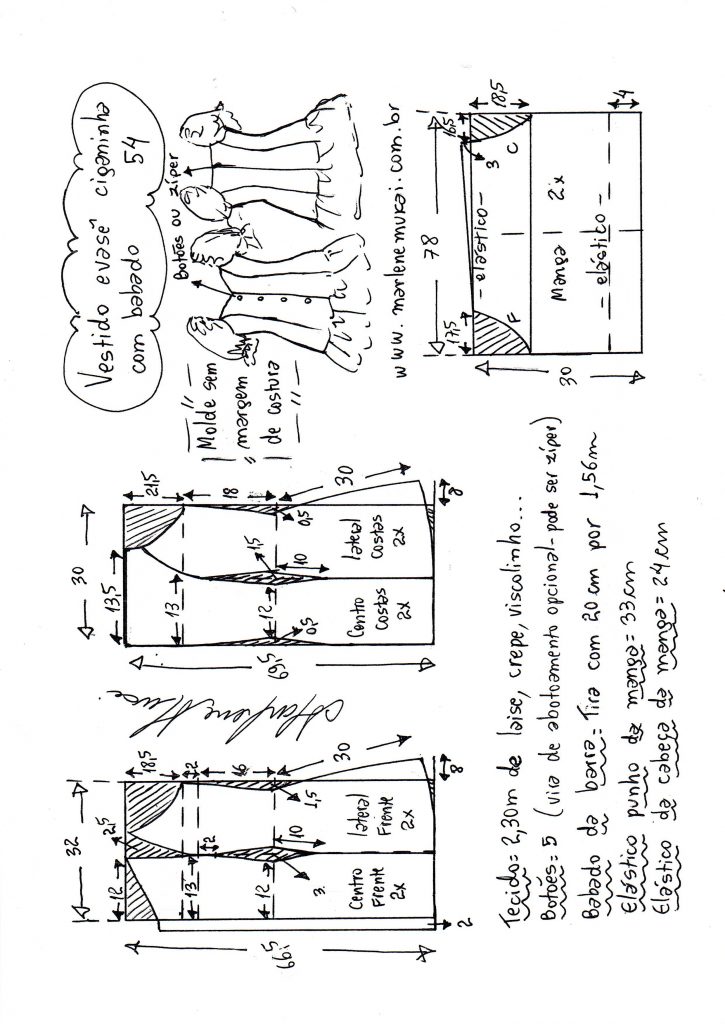 Vestido evasê ciganinha
com babado 54
Botões ou zíper
Molde sem
margem
de costura
www.marlenemukai.com.br
32
12
2,5
18,5
2
2
13
16
12
3
1,5
10
30
8
66,5
2
Centro
Frente
2x
lateral
Frente
2x
30
13,5
21,5
18
13
12
1,5
0,5
0,5
10
30
8
69,5
Centro
Costas
2x
lateral
Costas
2x
78
17,5
16,5
18,5
3
- elástico -
F
C
Manga 2x
- elástico -
4
30
Tecido= 2,30m de laise, crepe, viscolinho...
Botões= 5 (vira de abotoamento opcional- pode ser zíper)
Babado da barra= Tira com 20 cm por 1,56m
Elástico punho da manga= 33cm
Elástico da cabeça da manga= 24cm